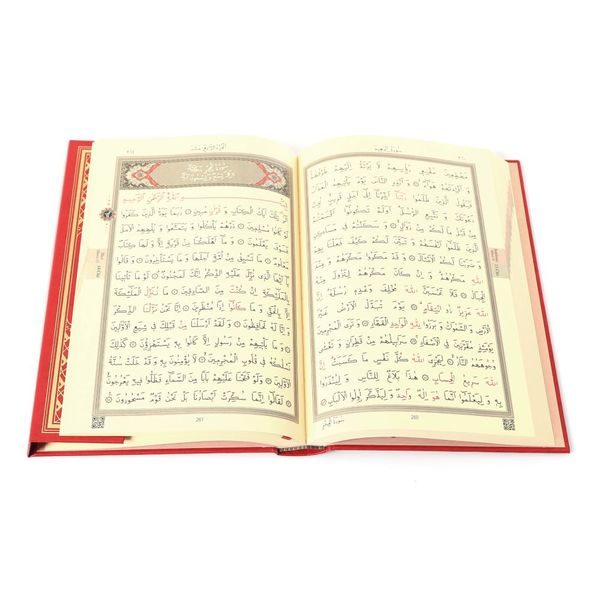 سُورَةُ إِبْرٰهِيمَ
مُهْطِعِينَ مُقْنِعِي رُؤُسِهِمْ لَا يَرْتَدُّ اِلَيْهِمْ طَرْفُهُمْ
وَ اَفْئِدَتُهُمْ هَوَاءٌ ۝ وَ اَنْذِرِ النَّاسَ يَوْمَ يَأْتِيهِمُ الْعَذَابُ
فَيَقُولُ الَّذِينَ ظَلَمُوا رَبَّنَا اَخِّرْنَا اِلٰى اَجَلٍ قَرِيبٍ نُجِبْ
دَعْوَتَكَ وَ نَتَّبِعِ الرُّسُلَ اَوَلَمْ تَكُونُوا اَقْسَمْتُمْ
مِنْ قَبْلُ مَا لَكُمْ مِنْ زَوَالٍ ۝ وَ سَكَنْتُمْ فِي مَسَاكِنِ
الَّذِينَ ظَلَمُوا اَنْفُسَهُمْ وَ تَبَيَّنَ لَكُمْ كَيْفَ فَعَلْنَا بِهِمْ
وَ ضَرَبْنَا لَكُمُ الْاَمْثَالَ ۝ وَ قَدْ مَكَرُوا مَكْرَهُمْ وَ عِنْدَ
اللّٰهِ مَكْرُهُمْ وَ اِنْ كَانَ مَكْرُهُمْ لِتَزُولَ مِنْهُ
الْجِبَالُ ۝ فَلَا تَحْسَبَنَّ اللّٰهَ مُخْلِفَ وَعْدِهِ رُسُلَهُ اِنَّ
اللّٰهَ عَزِيزٌ ذُو انْتِقَامٍ ۝ يَوْمَ تُبَدَّلُ الْاَرْضُ غَيْرَ
الْاَرْضِ وَ السَّمٰوَاتُ وَ بَرَزُوا لِلّٰهِ الْوَاحِدِ الْقَهَّارِ ۝ وَ تَرَى الْمُجْرِمِينَ
يَوْمَئِذٍ مُقَرَّنِينَ فِي الْاَصْفَادِ ۝ سَرَابِيلُهُمْ مِنْ قَطِرَانٍ وَ تَغْشٰى
وُجُوهَهُمُ النَّارُ ۝ لِيَجْزِيَ اللّٰهُ كُلَّ نَفْسٍ مَا كَسَبَتْ اِنَّ
اللّٰهَ سَرِيعُ الْحِسَابِ ۝ هٰذَا بَلَاغٌ لِلنَّاسِ وَ لِيُنْذَرُوا
بِهِ وَ لِيَعْلَمُوا اَنَّمَا هُوَ اِلٰهٌ وَاحِدٌ وَ لِيَذَّكَّرَ اُولُوا الْاَلْبَابِ ۝
260
٢٦١
اَلْجُزْءُ الرَّابِعَ عَشَرَ
بِسْمِ اللّٰهِ الرَّحْمٰنِ الرَّحِيمِ
الٓرٰ تِلْكَ اٰيَاتُ الْكِتَابِ وَ قُرْاٰنٍ مُبِينٍ ۝ رُبَمَا يَوَدُّ الَّذِينَ كَفَرُوا
لَوْ كَانُوا مُسْلِمِينَ ۝ ذَرْهُمْ يَأْكُلُوا وَ يَتَمَتَّعُوا وَ يُلْهِهِمُ الْاَمَلُ
فَسَوْفَ يَعْلَمُونَ ۝ وَ مَا اَهْلَكْنَا مِنْ قَرْيَةٍ اِلَّا وَ لَهَا كِتَابٌ
مَعْلُومٌ ۝ مَا تَسْبِقُ مِنْ اُمَّةٍ اَجَلَهَا وَ مَا يَسْتَأْخِرُونَ ۝ وَ قَالُوا
يَا اَيُّهَا الَّذِي نُزِّلَ عَلَيْهِ الذِّكْرُ اِنَّكَ لَمَجْنُونٌ ۝ لَوْ مَا تَأْتِينَا
بِالْمَلٰئِكَةِ اِنْ كُنْتَ مِنَ الصَّادِقِينَ ۝ مَا نُنَزِّلُ الْمَلٰئِكَةَ
اِلَّا بِالْحَقِّ وَ مَا كَانُوا اِذًا مُنْظَرِينَ ۝ اِنَّا نَحْنُ نَزَّلْنَا الذِّكْرَ
وَ اِنَّا لَهُ لَحَافِظُونَ ۝ وَ لَقَدْ اَرْسَلْنَا مِنْ قَبْلِكَ فِي شِيَعِ الْاَوَّلِينَ
۝ وَ مَا يَأْتِيهِمْ مِنْ رَسُولٍ اِلَّا كَانُوا بِهِ يَسْتَهْزِؤُنَ ۝ كَذٰلِكَ
نَسْلُكُهُ فِي قُلُوبِ الْمُجْرِمِينَ ۝ لَا يُؤْمِنُونَ بِهِ وَ قَدْ خَلَتْ سُنَّةُ
الْاَوَّلِينَ ۝ وَ لَوْ فَتَحْنَا عَلَيْهِمْ بَابًا مِنَ السَّمَاءِ فَظَلُّوا فِيهِ يَعْرُجُونَ
۝ لَقَالُوا اِنَّمَا سُكِّرَتْ اَبْصَارُنَا بَلْ نَحْنُ قَوْمٌ مَسْحُورُونَ ۝
261